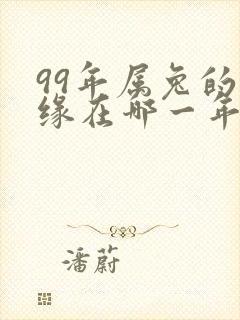 99年属兔的
缘在哪一年
潘蔚